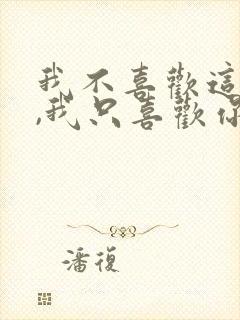 我不喜歡這
,我只喜歡你
潘復